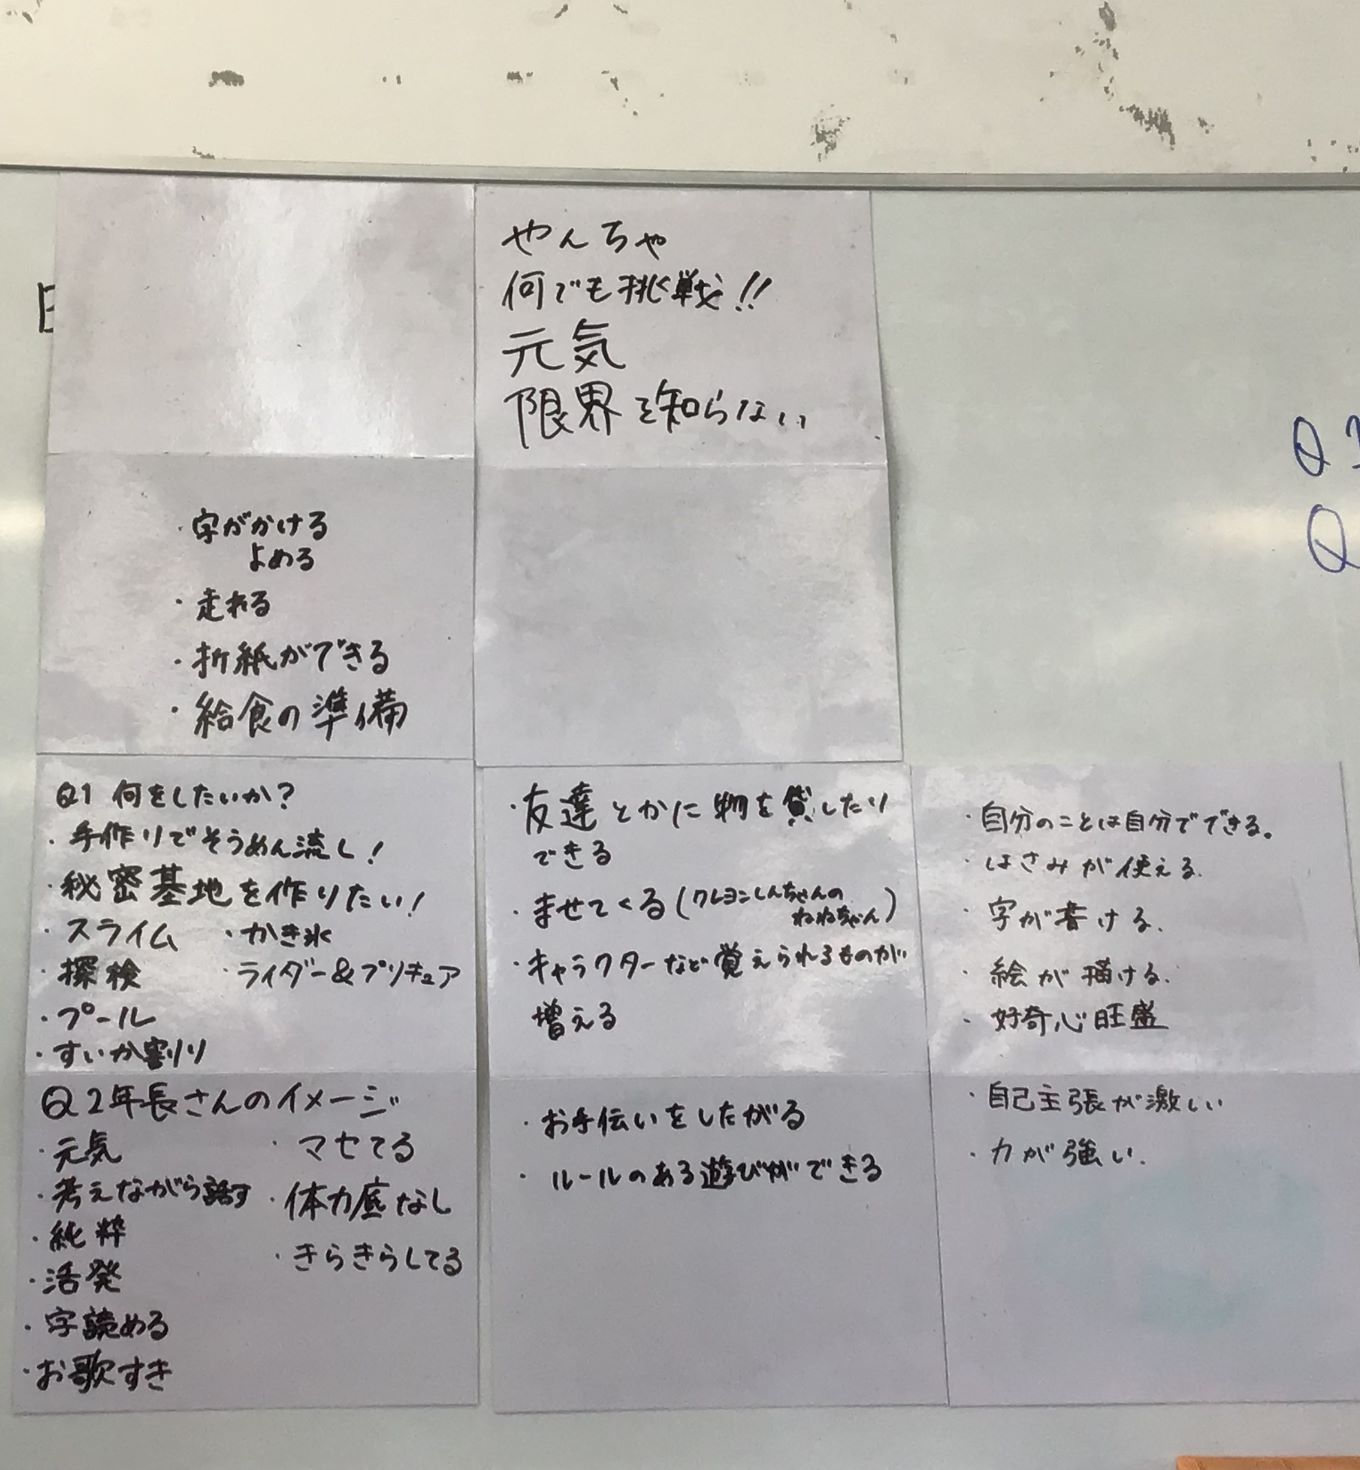 やんちゃ
何でも挑戦!!
元気
限界を知らない
・字がかける
よめる
・走れる
・折紙ができる
・給食の準備
Q1 何をしたいか?
・手作りでそうめん流し!
・秘密基地を作りたい!
・スライム ・かき氷
・探検 ・ライダー&プリキュア
・プール
・すいか割り
Q2年長さんのイメージ
・元気 ・マセてる
・考えながら話す ・体力底なし
・純粋 ・きらきらしてる
・活発
・字読める
・お歌すき
・友達とかに物を貸したり
できる
・ませてくる(クレヨンしんちゃんの
ねねちゃん)
・キャラクターなど覚えられるものが
増える
・お手伝いをしたがる
・ルールのある遊びができる
・自分のことは自分でできる。
・はさみが使える.
・字が書ける.
・絵が描ける.
・好奇心旺盛
・自己主張が激しい
・力が強い.
Q
Q